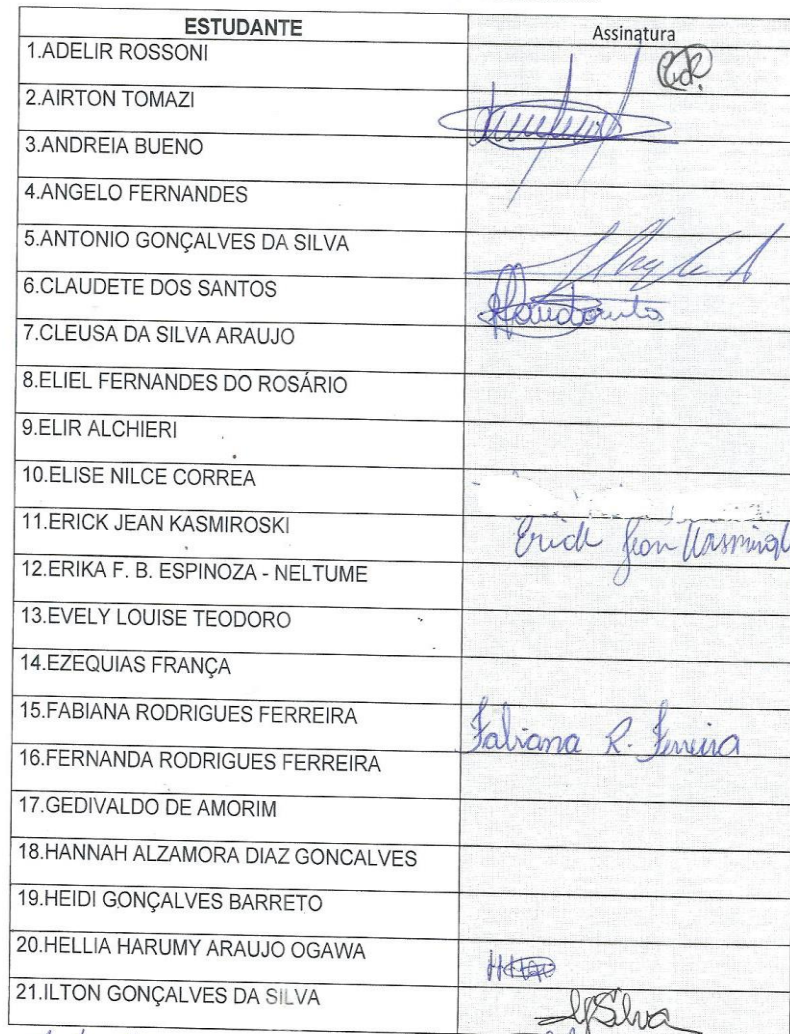 ESTUDANTE Assinatura
1.ADELIR ROSSONI
2.AIRTON TOMAZI
3.ANDREIA BUENO
4.ANGELO FERNANDES
5.ANTONIO GONÇALVES DA SILVA
6.CLAUDETE DOS SANTOS
7.CLEUSA DA SILVA ARAUJO
8.ELIEL FERNANDES DO ROSÁRIO
9.ELIR ALCHIERI
10.ELISE NILCE CORREA
11.ERICK JEAN KASMIROSKI Erick Jean
12.ERIKA F. B. ESPINOZA - NELTUME
13.EVELY LOUISE TEODORO
14.EZEQUIAS FRANÇA
15.FABIANA RODRIGUES FERREIRA Fabiana R. Ferreira
16.FERNANDA RODRIGUES FERREIRA
17.GEDIVALDO DE AMORIM
18.HANNAH ALZAMORA DIAZ GONCALVES
19.HEIDI GONÇALVES BARRETO
20.HELLIA HARUMY ARAUJO OGAWA
21.ILTON GONÇALVES DA SILVA Silva